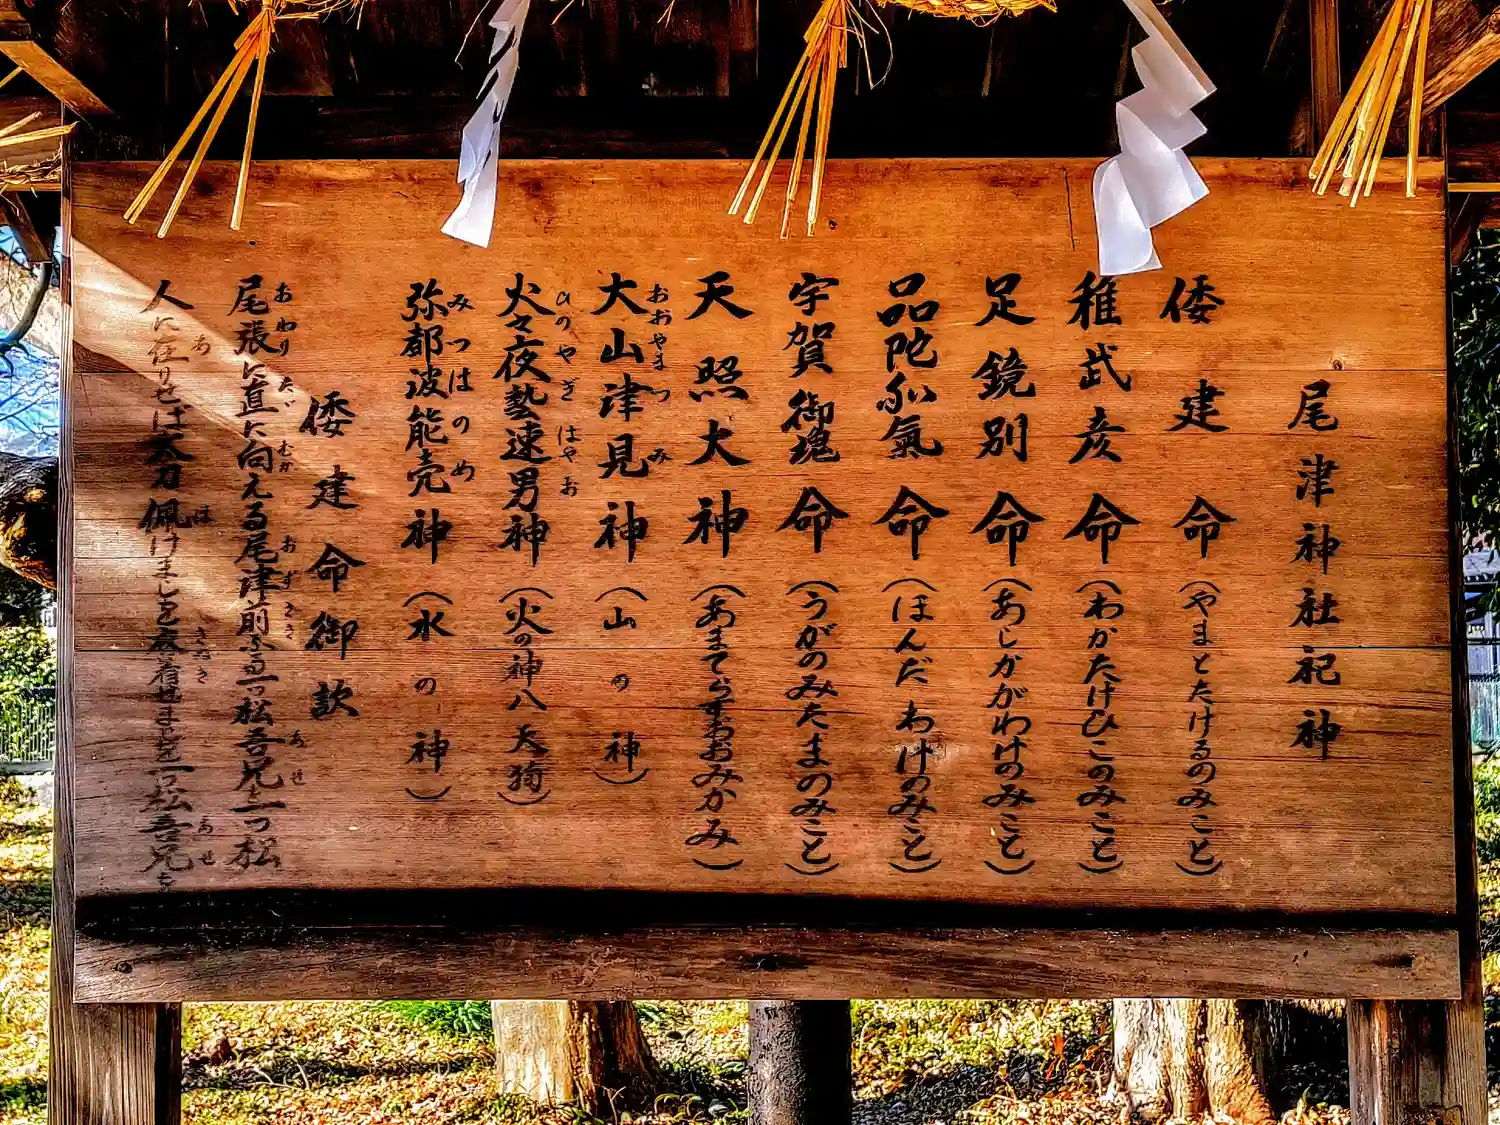 尾津神社祀神
倭建命（やまとたけるのみこと）
稚武彦命（わかたけひこのみこと）
足鏡別命（あしかがわけのみこと）
品陀和氣命（ほんだわけのみこと）
宇賀御魂命（うがのみたまのみこと）
天照大神（あまてらすおおみかみ）
おおやまつみ
大山津見神（山の神）
ひのやぎはやお
火々夜藝速男神（火の神八天狗）
みつはのめ
弥都波能売神（水の神）
倭建命御歌
おわりたゞむかおずさきあせ
尾張に直に向える尾津前なる一つ松吾兄を一つ松
あほきぬきあせ
人に在りせば太刀佩けましを衣着せましを一つ松吾兄を